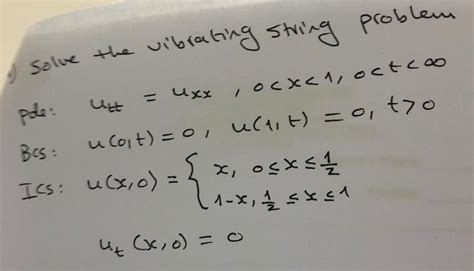 ) Solve the vibrating string problem
pde: u_tt = u_xx , 0<x<1, 0<t<∞
BCs: u(0,t)=0, u(1,t)=0, t>0
ICs: u(x,0) = { x, 0≤x≤1/2
1-x, 1/2≤x≤1
u_t(x,0)=0